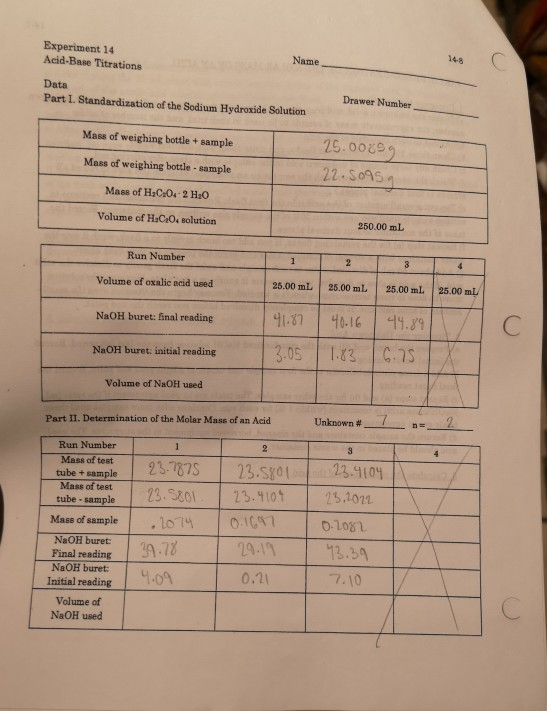 Experiment 14
Acid-Base Titrations
Name
14-8
Data
Part I. Standardization of the Sodium Hydroxide Solution
Drawer Number
Mass of weighing bottle + sample 25.0085g
Mass of weighing bottle - sample 22.5095g
Mass of H₂C₂O₄ · 2 H₂O
Volume of H₂C₂O₄ solution 250.00 mL
Run Number 1 2 3 4
Volume of oxalic acid used 25.00 mL 25.00 mL 25.00 mL 25.00 mL
NaOH buret: final reading 41.87 40.16 44.89
NaOH buret: initial reading 3.05 1.83 6.75
Volume of NaOH used
Part II. Determination of the Molar Mass of an Acid
Unknown # 7 n = 2
Run Number 1 2 3 4
Mass of test
tube + sample 23.7875 23.5801 23.4104
Mass of test
tube - sample 23.5801 23.4104 23.2022
Mass of sample .2074 0.1697 0.2082
NaOH buret:
Final reading 39.78 29.19 43.39
NaOH buret:
Initial reading 4.09 0.21 7.10
Volume of
NaOH used